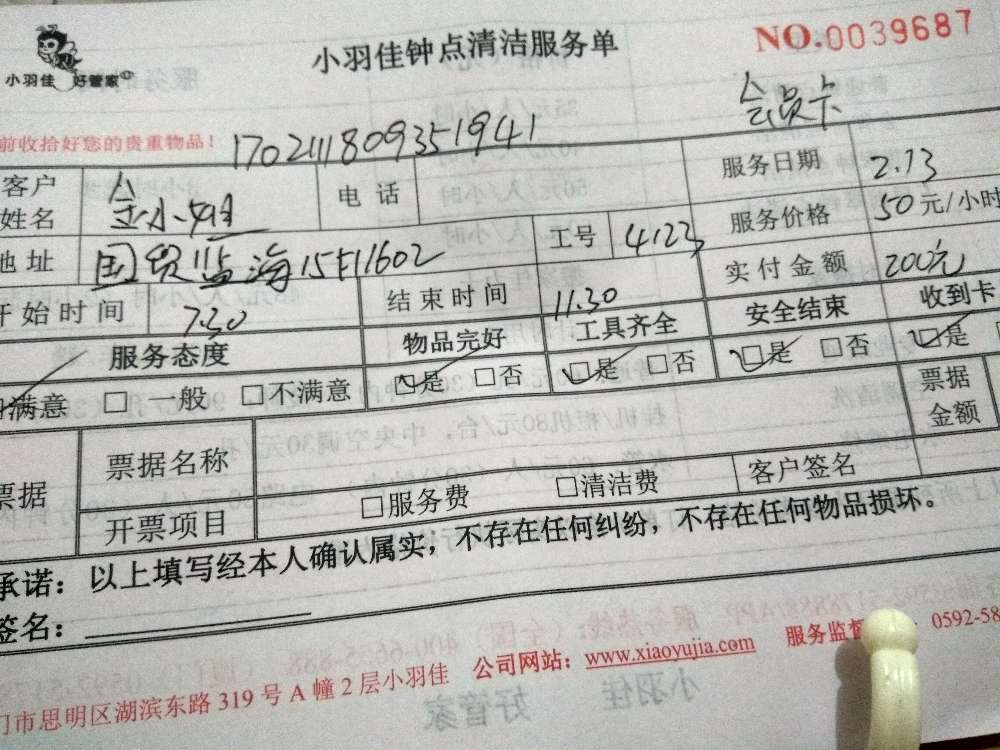 小羽佳 好管家
小羽佳钟点清洁服务单
NO.0039687
会员卡
前收拾好您的贵重物品！
1702111809351941
客户姓名 电话 服务日期 2.13
地址 国贸蓝海15#1602 工号 4123 服务价格 50元/小时
开始时间 7.30 结束时间 11.30 实付金额 200元
服务态度 物品完好 工具齐全 安全结束 收到卡
满意 □一般 □不满意 □是 □否 □是 □否 □是 □否 □是
票据 票据名称 票据金额
开票项目 □服务费 □清洁费 客户签名
承诺：以上填写经本人确认属实，不存在任何纠纷，不存在任何物品损坏。
签名：
门市思明区湖滨东路 319 号 A 幢 2 层小羽佳 公司网站：www.xiaoyujia.com 服务监督 0592-58